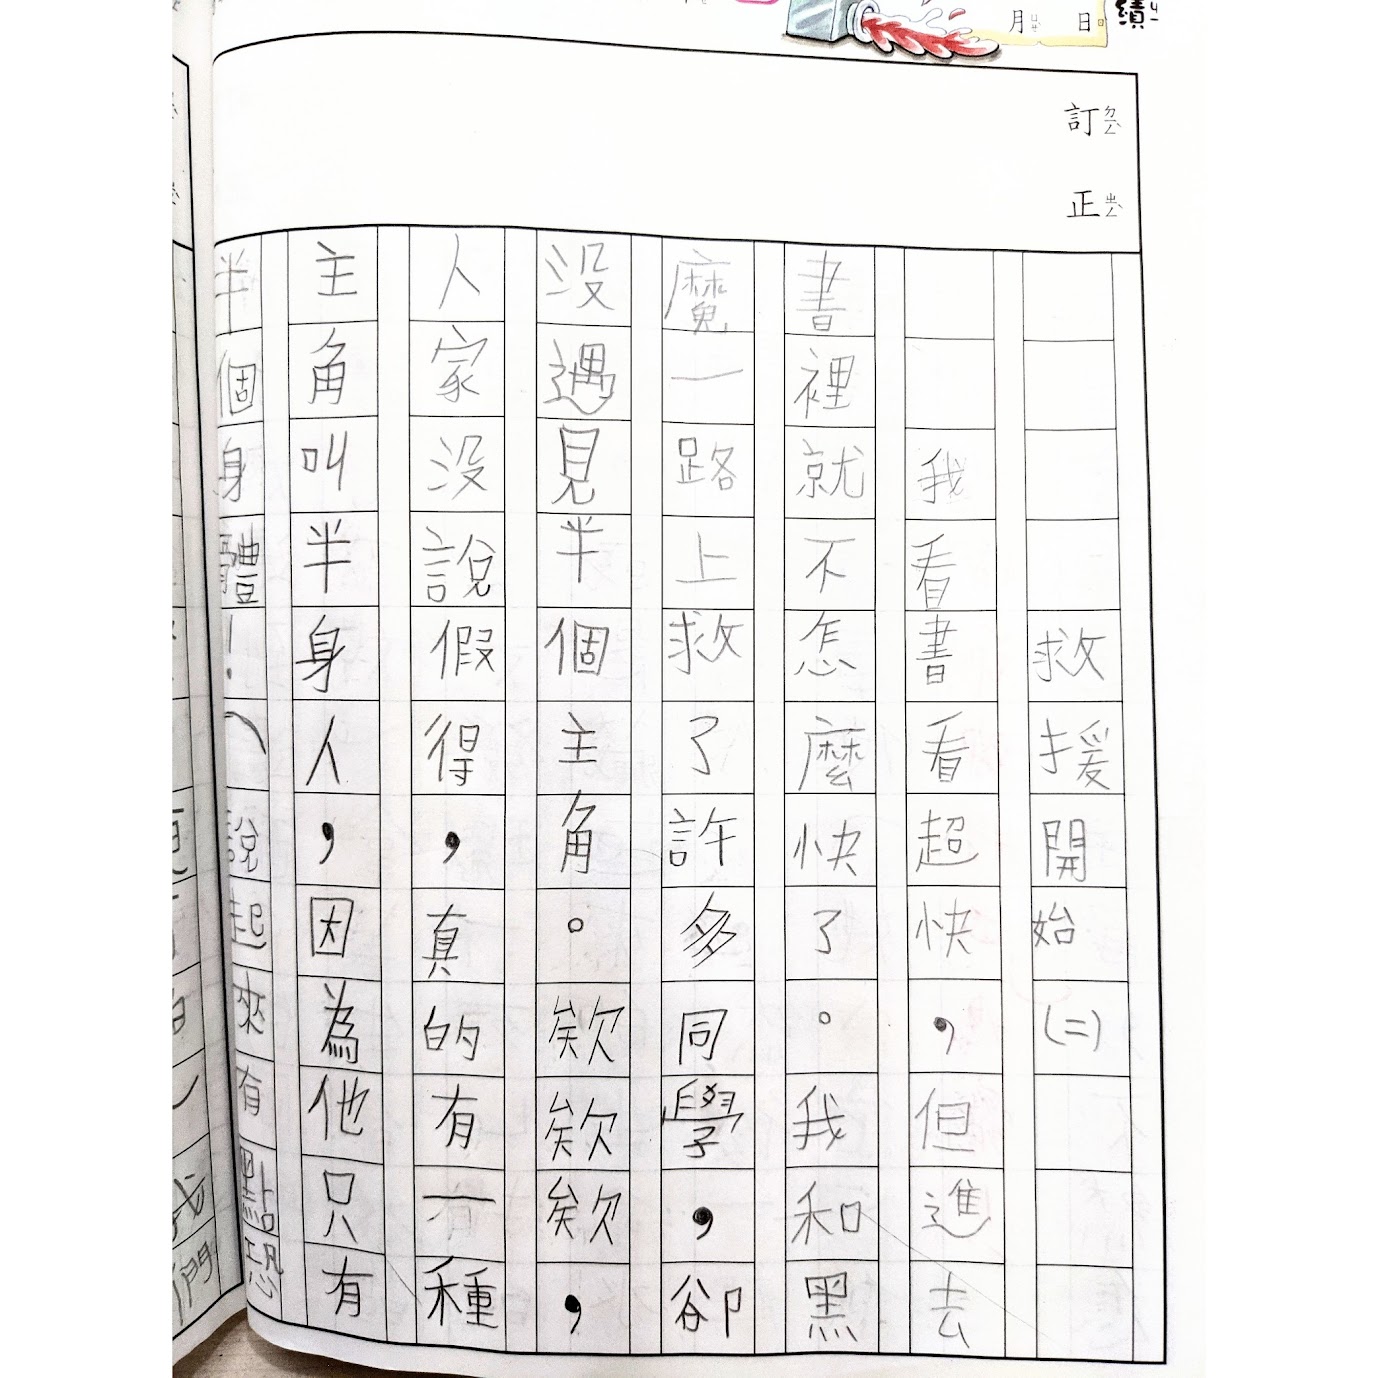 績
月 日
訂正
救援開始(二)
我看書看超快，但進去
書裡就不怎麼快了。我和黑
魔一路上救了許多同學，卻
沒遇見半個主角。欸欸欸，
人家沒說假得，真的有一種
主角叫半身人，因為他只有
半個身體！（說起來有點恐
我們